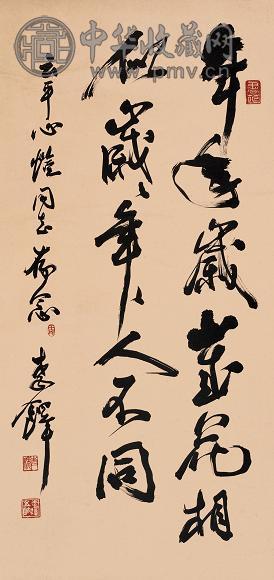 中华收藏网
www.pmv.cn
年年歲歲花相
似歲々年々人不同
云平心愷同志存念
李鐸